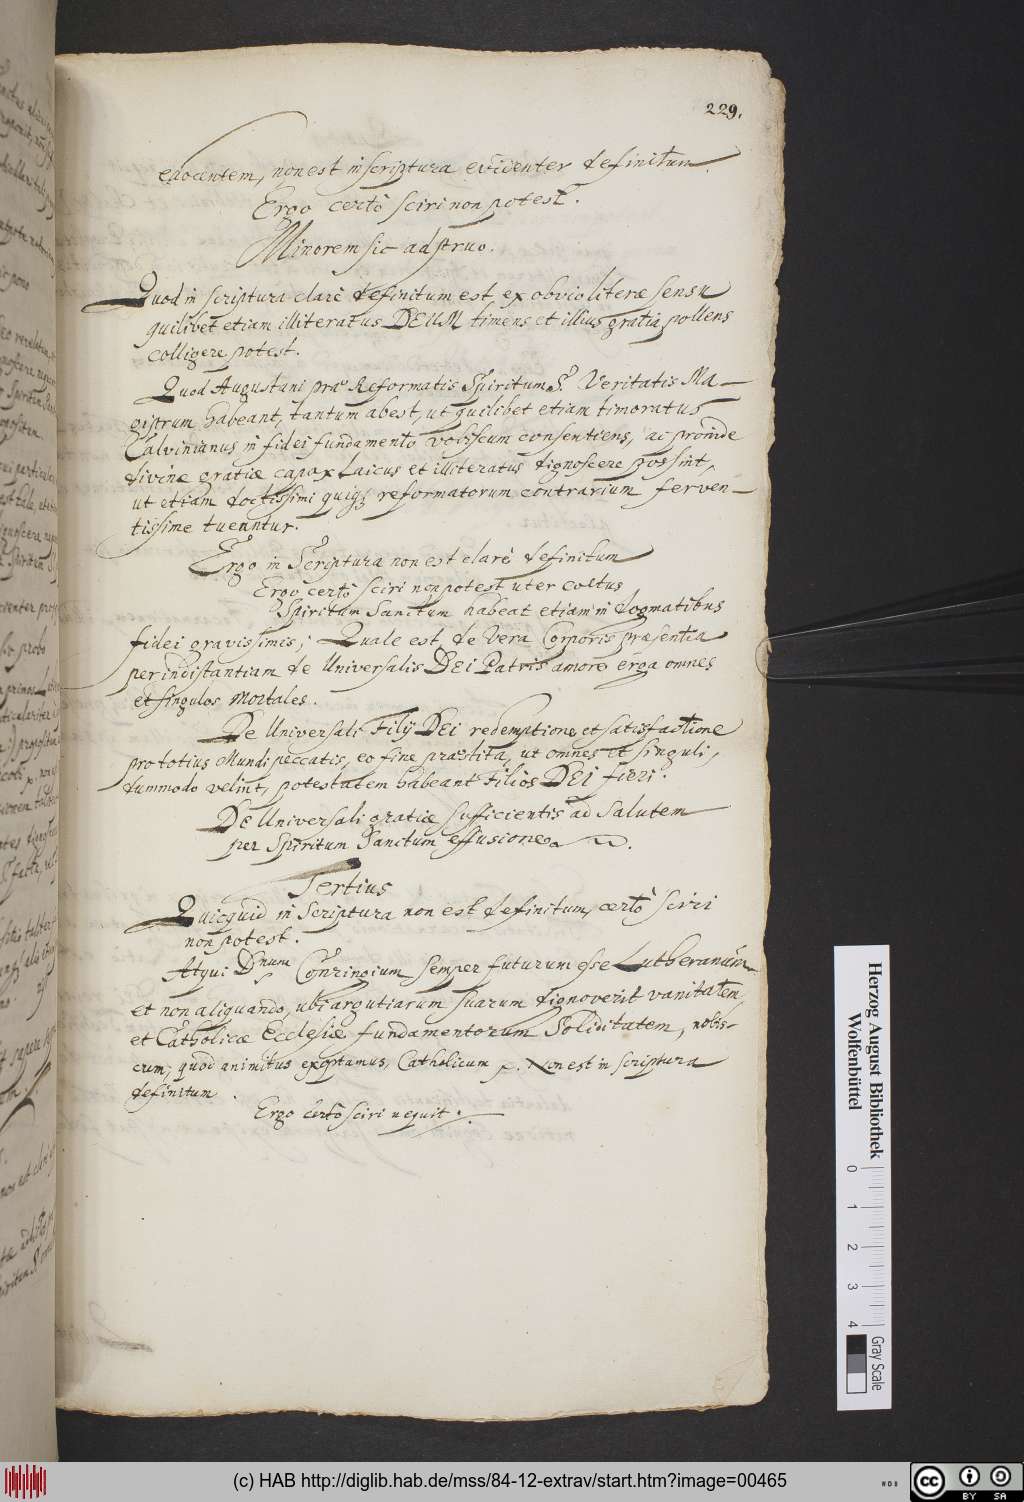 229.
edocentem, non est in scriptura evidenter definitum.
Ergo certò sciri non potest.
Minorem sic adstruo.
Quod in scriptura clarè definitum est ex obvio literæ sensu
quilibet etiam illiteratus DEUM timens et illius gratia pollens
colligere potest.
Quod Augustani præ Reformatis Spiritum S. Veritatis Ma-
gistrum habeant, tantum abest, ut quilibet etiam timoratus
Calvinianus in fidei fundamento vobiscum consentiens, ac proinde
divinæ gratiæ capax Laicus et illiteratus dignoscere possint,
ut etiam doctissimi quiq; reformatorum contrarium ferven-
tissime tueantur.
Ergo in Scriptura non est clarè definitum
Ergo certò sciri non potest uter cœtus
Spiritum Sanctum habeat etiam in dogmatibus
fidei gravissimis; Quale est de Vera Corporis præsentia
per indistantiam de Universalis DEI Patris amore erga omnes
et singulos mortales.
De Universali Filij DEI redemptione et satisfactione
pro totius Mundi peccatis, eo fine præstita, ut omnes et singuli,
dummodo velint, potestatem habeant Filios DEI fieri.
De Universali gratiæ sufficientis ad Salutem
per Spiritum Sanctum effusione.
Tertius
Quicquid in Scriptura non est definitum, certò sciri
non potest.
Atqui Dnum Conringium semper futurum esse Lutheranum
et non aliquando, ubi argutiarum suarum dignoverit vanitatem,
et Catholicæ Ecclesiæ fundamentorum Soliditatem, nobis-
cum, quod animitus exoptamus, Catholicum. Non est in scriptura
definitum.
Ergo certò sciri nequit.
Herzog August Bibliothek
Wolfenbüttel
0 1 2 3 4
Gray Scale
(c) HAB http://diglib.hab.de/mss/84-12-extrav/start.htm?image=00465
CC BY SA